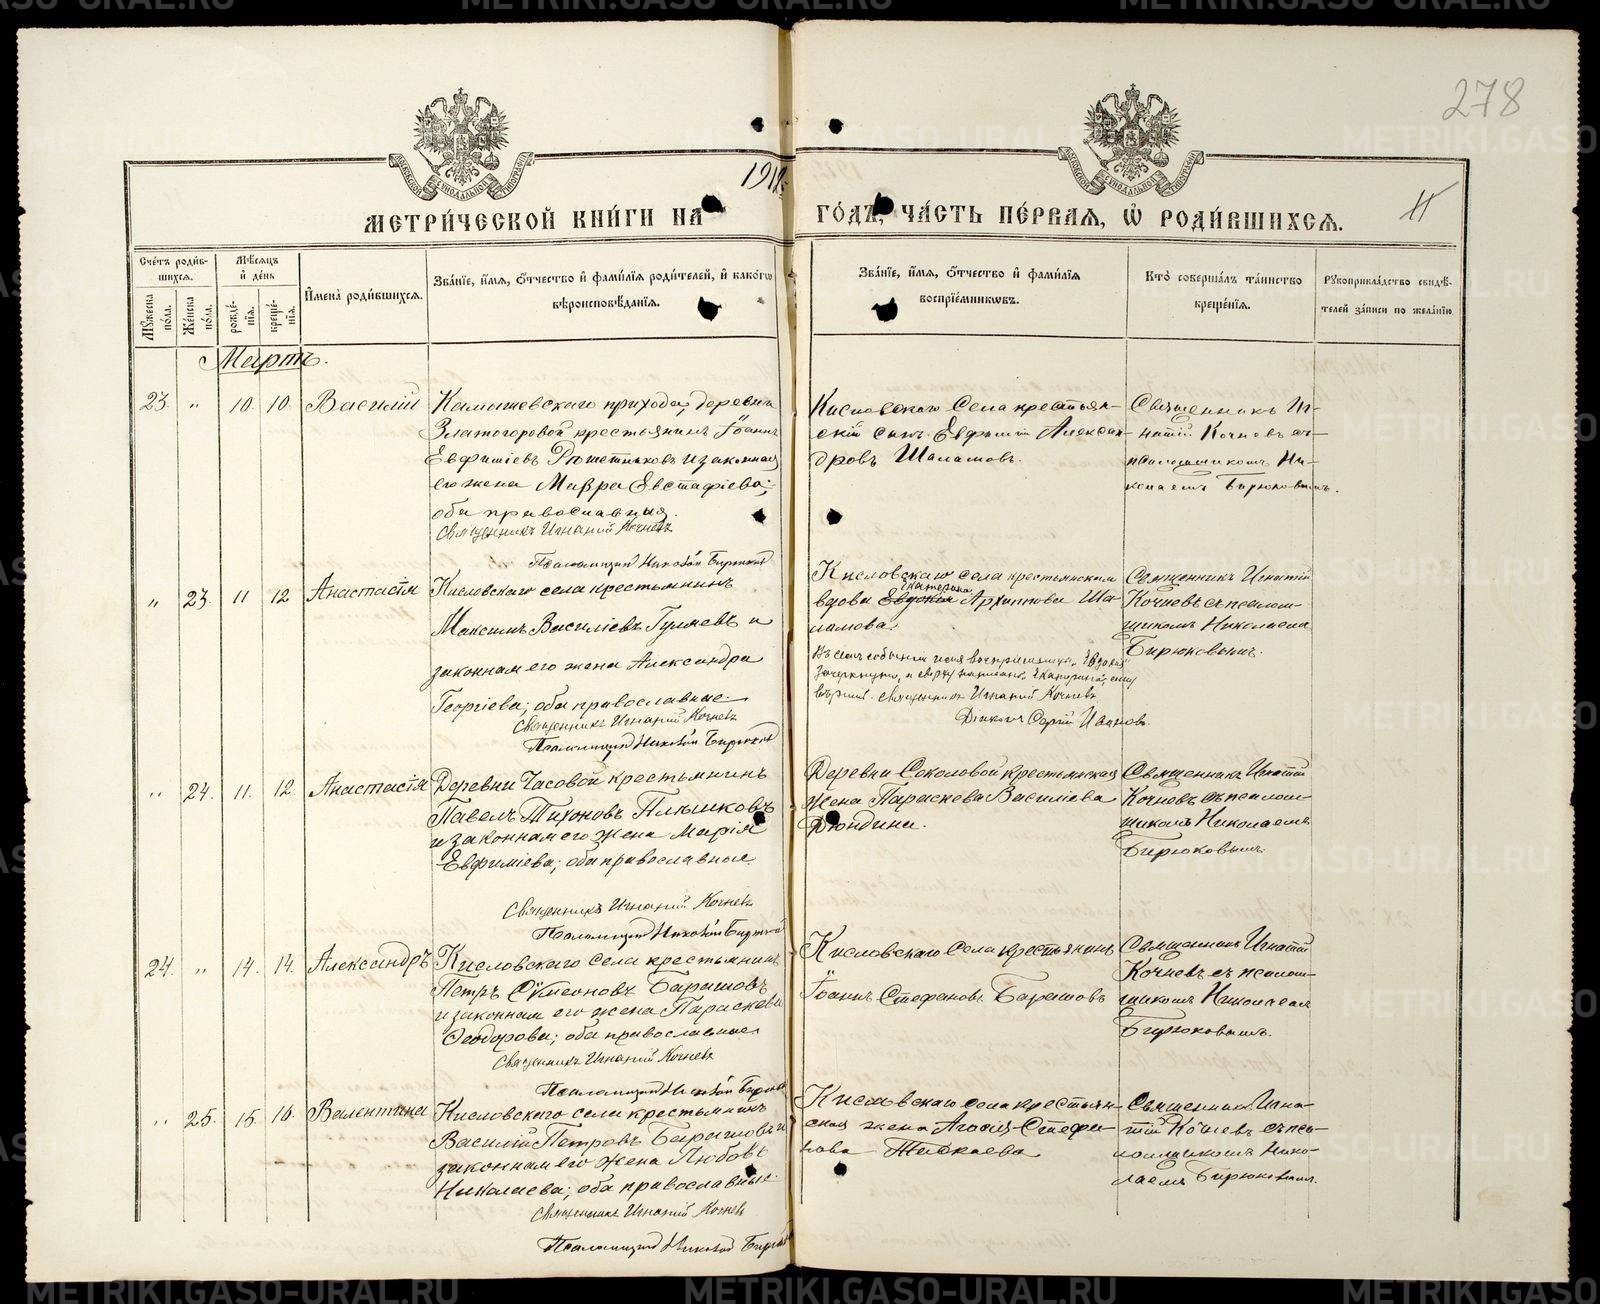 278
1912
11
МЕТРИ́ЧЕСКОЙ КНИ́ГИ НА ГО́ДЪ, ЧА́СТЬ ПЕ́РВАЯ, Ѡ҆ РОДИ́ВШИХСЯ.
Сче́тъ роди́в-
шихся.
Му́жеска по́ла.
Же́нска по́ла.
Мѣ́сяцъ
и҆ де́нь
рожде́-
нїя.
креще́-
нїя.
И҆мена̀ роди́вшихся.
Зва́нїе, и҆́мя, ѻ҆́тчество и҆ фами́лїя роди́телей, и҆ како́гѡ
вѣроисповѣ́данїя.
Зва́нїе, и҆́мя, ѻ҆́тчество и҆ фами́лїя
воспрїе́мникѡвъ.
Кто̀ соверша́лъ та́инство
креще́нїя.
Рꙋкоприкла́дство свидѣ́-
телей за́писи по жела́нїю
Мартъ.
23. „ 10. 10. Василій
Камышевскаго прихода, деревни
Златогоровой крестьянинъ Іоаннъ
Евфиміевъ Рѣшетниковъ и законная
его жена Мавра Евстафіева;
оба православныя.
Священникъ Игнатій Кочневъ
Псаломщикъ Николай Бирюковъ
Кисловскаго села крестьян-
скій сынъ Евфимій Алексан-
дровъ Шаламовъ.
Священникъ Иг-
натій Кочневъ съ
псаломщикомъ Ни-
колаемъ Бирюковымъ.
„ 23. 11 12 Анастасія
Кисловскаго села крестьянинъ
Максимъ Василіевъ Гуляевъ и
законная его жена Александра
Георгіева; оба православные.
Священникъ Игнатій Кочневъ
Псаломщикъ Николай Бирюковъ
Кисловскаго села крестьянская
Екатерина
вдова Евдокія Архиппова Ша-
ламова.
зачеркнуто, и сверху написано „Екатерина", сему
вѣрить. Священникъ Игнатій Кочневъ
Діаконъ Сергій Ивановъ.
Священникъ Игнатій
Кочневъ съ псалом-
щикомъ Николаемъ
Бирюковымъ.
„ 24. 11. 12. Анастасія
Деревни Часовой крестьянинъ
Павелъ Тихоновъ Плѣшковъ
и законная его жена Марія
Евфиміева; оба православные
Священникъ Игнатій Кочневъ
Псаломщикъ Николай Бирюковъ
Деревни Соколовой крестьянская
жена Параскева Василіева
Дюндина.
Священникъ Игнатій
Кочневъ съ псалом-
щикомъ Николаемъ
Бирюковымъ.
24. „ 14. 14. Александръ
Кисловскаго села крестьянинъ
Петръ Сѵмеоновъ Барашовъ
и законная его жена Параскева
Ѳеодорова; оба православные
Священникъ Игнатій Кочневъ
Псаломщикъ Николай Бирюковъ
Кисловскаго села крестьянинъ
Іоаннъ Стефановъ Барашовъ
Священникъ Игнатій
Кочневъ съ псалом-
щикомъ Николаемъ
Бирюковымъ.
„ 25. 15. 16. Валентина
Кисловскаго села крестьянинъ
Василій Петровъ Барашовъ и
законная его жена Любовь
Николаева; оба православные.
Священникъ Игнатій Кочневъ
Псаломщикъ Николай
Кисловскаго села крестьян-
ская жена Агафія Стефа-
нова
Священникъ Игна-
тій Кочневъ съ пса-
ломщикомъ Нико-
лаемъ Бирюковымъ.
METRIKI.GASO-URAL.RU